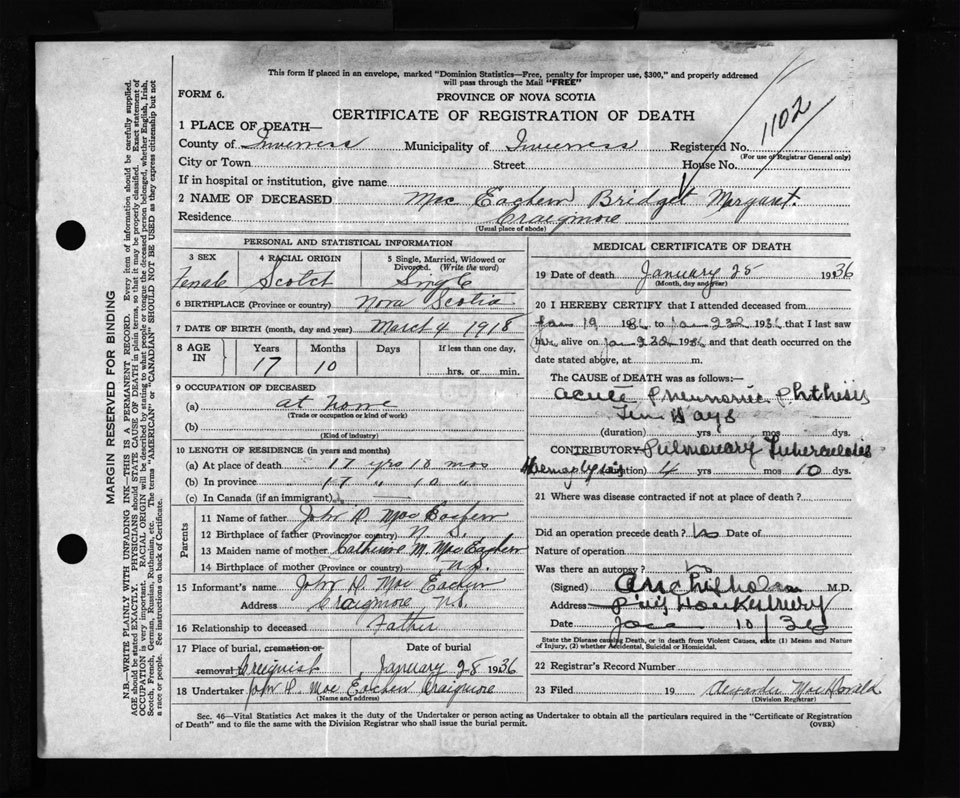 This form if placed in an envelope, marked "Dominion Statistics—Free, penalty for improper use, $300," and properly addressed
will pass through the Mail "FREE"
FORM 6.
PROVINCE OF NOVA SCOTIA
CERTIFICATE OF REGISTRATION OF DEATH
1102
1 PLACE OF DEATH—
County of Inverness Municipality of Inverness Registered No.
(For use of Registrar General only)
City or Town Street House No.
If in hospital or institution, give name
2 NAME OF DECEASED Mac Eachern Bridget Margaret.
Residence Craigmore
(Usual place of abode)
MARGIN RESERVED FOR BINDING
N.B.—WRITE PLAINLY WITH UNFADING INK—THIS IS A PERMANENT RECORD. Every item of information should be carefully supplied.
AGE should be stated EXACTLY. PHYSICIANS should state CAUSE OF DEATH in plain terms, so that it may be properly classified. Exact statement of
OCCUPATION is very important. RACIAL ORIGIN will be described by stating to what people or tongue the deceased person belonged, whether English, Irish,
Scotch, French, German, Russian, Ruthenian, etc. The terms "AMERICAN" or "CANADIAN" SHOULD NOT BE USED as they express citizenship but not
a race or people. See instructions on back of Certificate.
PERSONAL AND STATISTICAL INFORMATION
3 SEX 4 RACIAL ORIGIN 5 Single, Married, Widowed or
Divorced. (Write the word)
Female Scotch Single
6 BIRTHPLACE (Province or country) Nova Scotia
7 DATE OF BIRTH (month, day and year) March 4 1918
8 AGE IN Years Months Days If less than one day,
17 10 hrs. or min.
9 OCCUPATION OF DECEASED
(a) at home
(Trade or occupation or kind of work)
(b)
(Kind of industry)
10 LENGTH OF RESIDENCE (in years and months)
(a) At place of death 17 yrs 10 mos
(b) In province 17 " 10 "
(c) In Canada (if an immigrant)
Parents
11 Name of father John D. Mac Eachern
12 Birthplace of father (Province or country) N. S.
13 Maiden name of mother Catherine M. Mac Eachern
14 Birthplace of mother (Province or country) N.S.
15 Informant's name John D. Mac Eachern
Address Craigmore N.S.
16 Relationship to deceased Father
17 Place of burial, cremation or Date of burial
removal Creignish January 28 1936
18 Undertaker John D. Mac Eachern Craigmore
(Name and address)
MEDICAL CERTIFICATE OF DEATH
19 Date of death January 25 1936
(Month, day and year)
20 I HEREBY CERTIFY that I attended deceased from
Jan 19 1936 to Jan 23d 1936 that I last saw
her alive on Jan 23d 1936 and that death occurred on the
date stated above, at m.
The CAUSE of DEATH was as follows:—
Acute Pneumonic Phthisis
Ten Days
(duration) yrs mos dys.
CONTRIBUTORY Pulmonary Tuberculosis
Hemoptysis (duration) 4 yrs mos 10 dys.
21 Where was disease contracted if not at place of death?
Did an operation precede death? No Date of
Nature of operation
Was there an autopsy? No
(Signed) M.D.
Address Port Hawkesbury
Date
State the Disease causing Death, or in death from Violent Causes, state (1) Means and Nature
of Injury, (2) whether Accidental, Suicidal or Homicidal.
22 Registrar's Record Number
23 Filed 19 Alexander MacDonald
(Division Registrar)
Sec. 46—Vital Statistics Act makes it the duty of the Undertaker or person acting as Undertaker to obtain all the particulars required in the "Certificate of Registration
of Death" and to file the same with the Division Registrar who shall issue the burial permit. (OVER)